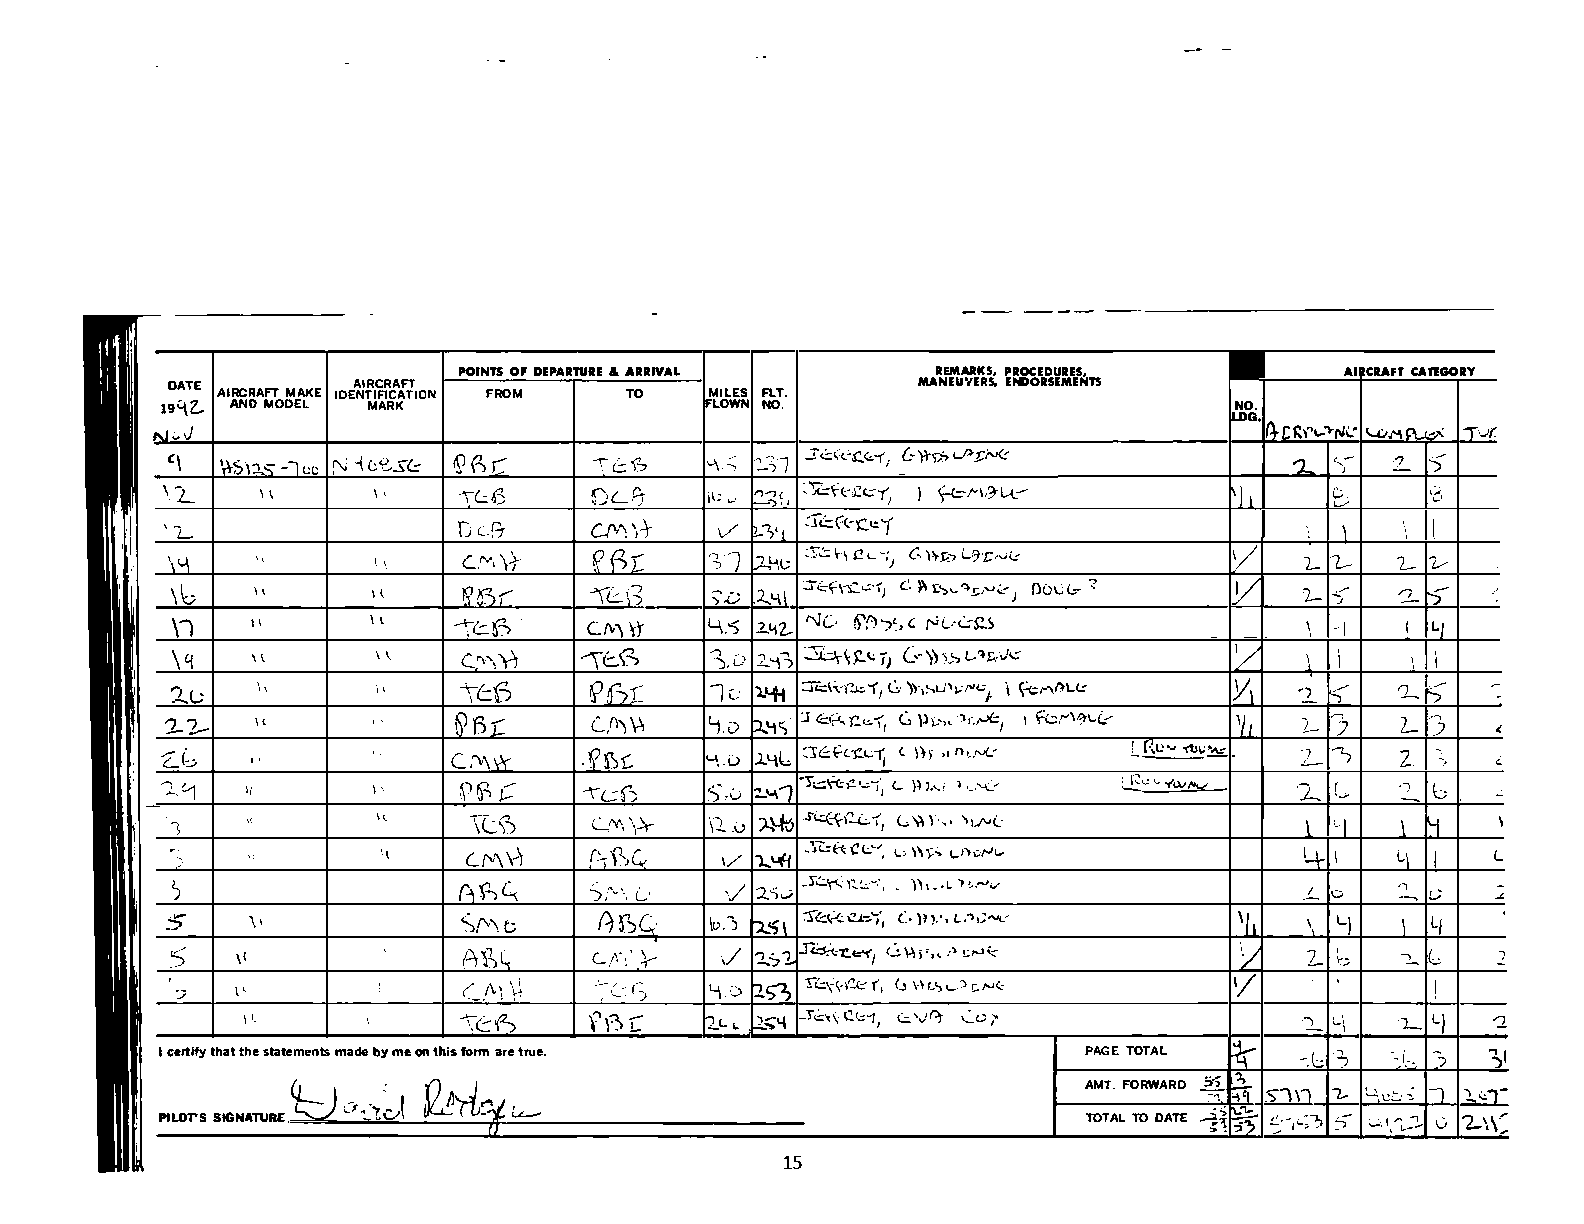 DATE 1992 AIRCRAFT MAKE AND MODEL AIRCRAFT IDENTIFICATION MARK POINTS OF DEPARTURE & ARRIVAL FROM TO MILES FLOWN FLT. NO. REMARKS, PROCEDURES, MANEUVERS, ENDORSEMENTS NO. LDG. AIRCRAFT CATEGORY
NOV AIRPLANE COMPLEX
9 HS125-700 PBI TEB 4.5 237 JEFFREY, GHISLAINE 2 5 2 5
12 " " TEB DCA 238 JEFFREY, 1 FEMALE 1/1 8 8
12 DCA CMH ✓ 239 JEFFREY 1 1 1 1
14 " " CMH PBI 37 240 JEFFREY, GHISLAINE 1/ 2 2 2 2
16 " " PBI TEB 5.0 241 JEFFREY, GHISLAINE, DOUG? 1/ 2 5 2 5
17 " " TEB CMH 4.5 242 NO PASSENGERS 1 4 1 4
19 " " CMH TEB 3.0 243 JEFFREY, GHISLAINE 1/ 1 1 1 1
20 " " TEB PBI 70 244 JEFFREY, GHISLAINE, 1 FEMALE 1/1 2 5 2 5
22 " " PBI CMH 4.0 245 JEFFREY, GHISLAINE, 1 FEMALE 1/1 2 3 2 3
26 " " CMH PBI 4.0 246 JEFFREY, GHISLAINE 2 3 2 3
29 " " PBI TEB 5.0 247 JEFFREY, GHISLAINE 2 6 2 6
3 " " TEB CMH 12.0 248 JEFFREY, GHISLAINE 1 4 1 4
3 " " CMH ABQ ✓ 249 JEFFREY, GHISLAINE 4 1 4 1
3 ABQ SMO ✓ 250 JEFFREY, GHISLAINE 2 0 2 0
5 " SMO ABQ 251 JEFFREY, GHISLAINE 1/1 1 4 1 4
5 " ABQ CMH ✓ 252 JEFFREY, GHISLAINE 1/ 2 6 2 6
" CMH TEB 4.0 253 JEFFREY, GHISLAINE 1/
" TEB PBI 254 JEFFREY, EVA 2 4 2 4
I certify that the statements made by me on this form are true.
PAGE TOTAL 4/4 36 3 36 3
AMT. FORWARD 5717 2 4085 7
PILOT'S SIGNATURE David Rodgers
TOTAL TO DATE 5753 5 4122 0
15